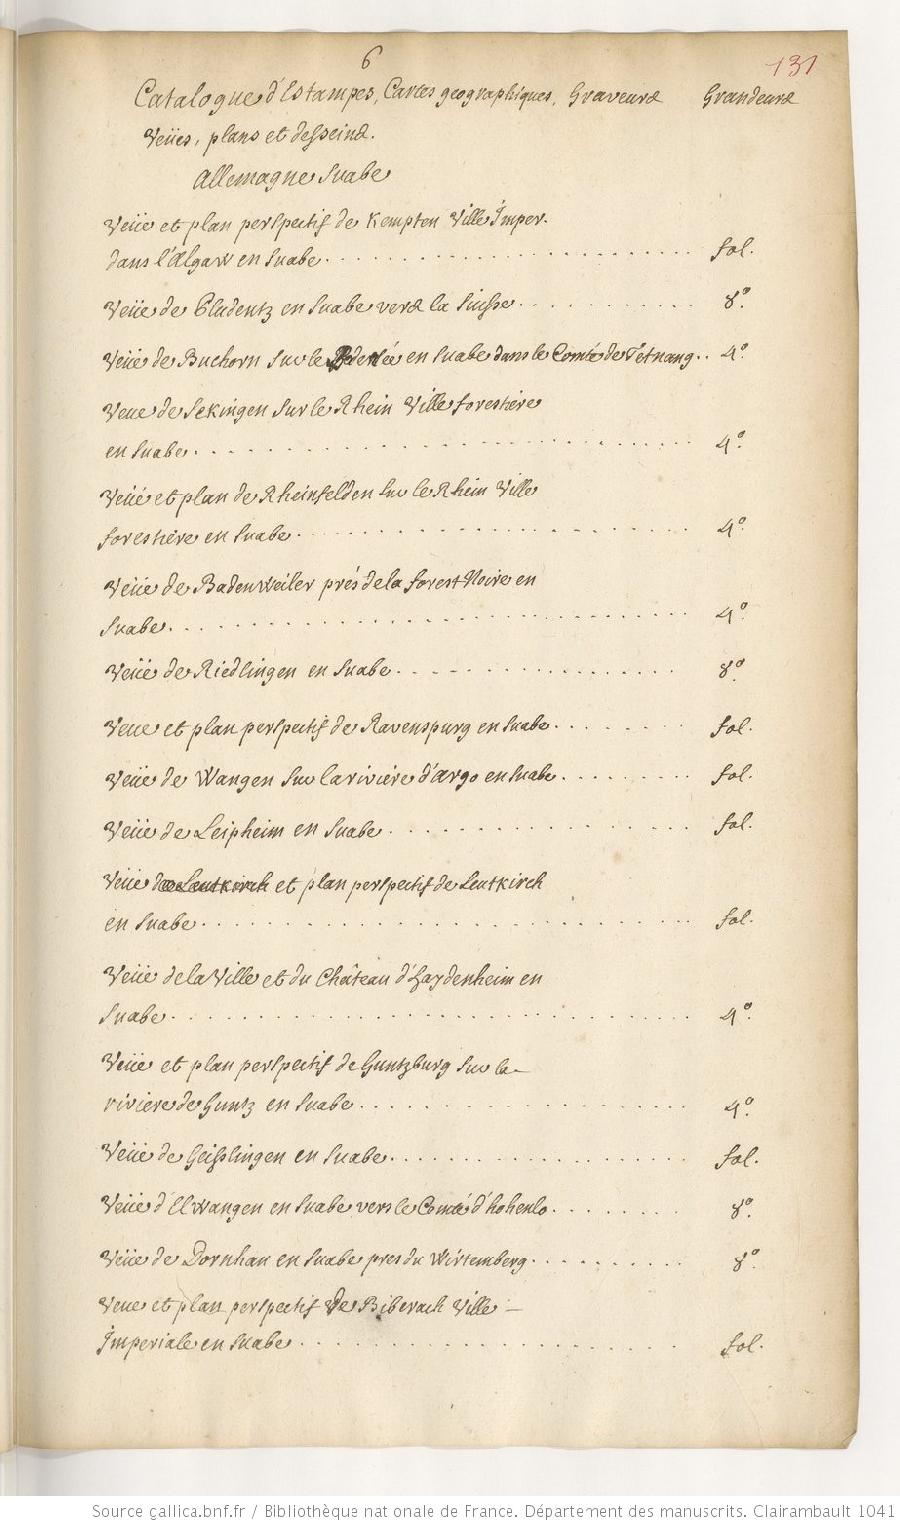 6
131
Catalogue d'Estampes, Cartes geographiques, Graveures Grandeures
Veües, plans et desseins.
Allemagne Suabe
Veüe et plan perspectif de Kempten Ville Imper.
dans l'Algaw en Suabe. fol.
Veüe de Bludentz en Suabe vers la Suisse. 8º.
Veüe de Buchorn sur le Bodensée en Suabe dans le Comté de Tetnang.. 4º.
Veue de Sekingen sur le Rhein Ville forestiére
en Suabe. 4º.
Veüe et plan de Rheinfelden sur le Rhein Ville
forestiére en Suabe. 4º.
Veüe de Badenweiler prés de la forest Noire en
Suabe. 4º.
Veüe de Riedlingen en Suabe. 8º.
Veue et plan perspectif de Ravenspurg en Suabe. fol.
Veüe de Wangen sur la riviére d'Argo en Suabe. fol.
Veüe de Leipheim en Suabe. fol.
Veüe de Leutkirch et plan perspectif de Leutkirch
en Suabe. fol.
Veüe de la Ville et du Château d'Haydenheim en
Suabe. 4º.
Veüe et plan perspectif de Guntzburg sur la
riviere de Guntz en Suabe. 4º.
Veüe de Geisslingen en Suabe. fol.
Veüe d'Elwangen en Suabe vers le Comté d'hohenlo. 8º.
Veüe de Dornhan en Suabe pres du Wirtemberg. 8º.
Veue et plan perspectif de Biberach Ville
Imperiale en Suabe. fol.
Source gallica.bnf.fr / Bibliothèque nationale de France. Département des manuscrits. Clairambault 1041